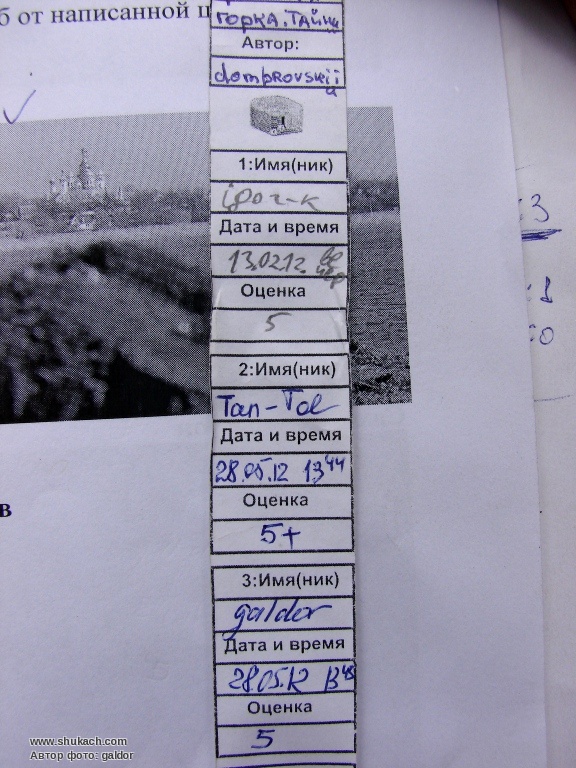 б от написанной
горка. Тайны
Автор:
dombrovskii
1:Имя(ник)
Дата и время
13.02.12.
Оценка
5
2:Имя(ник)
Tan-Tol
Дата и время
28.05.12 13 44
Оценка
5+
3:Имя(ник)
galdor
Дата и время
28.05.12 13 45
Оценка
5
в
www.shukach.com
Автор фото: galdor